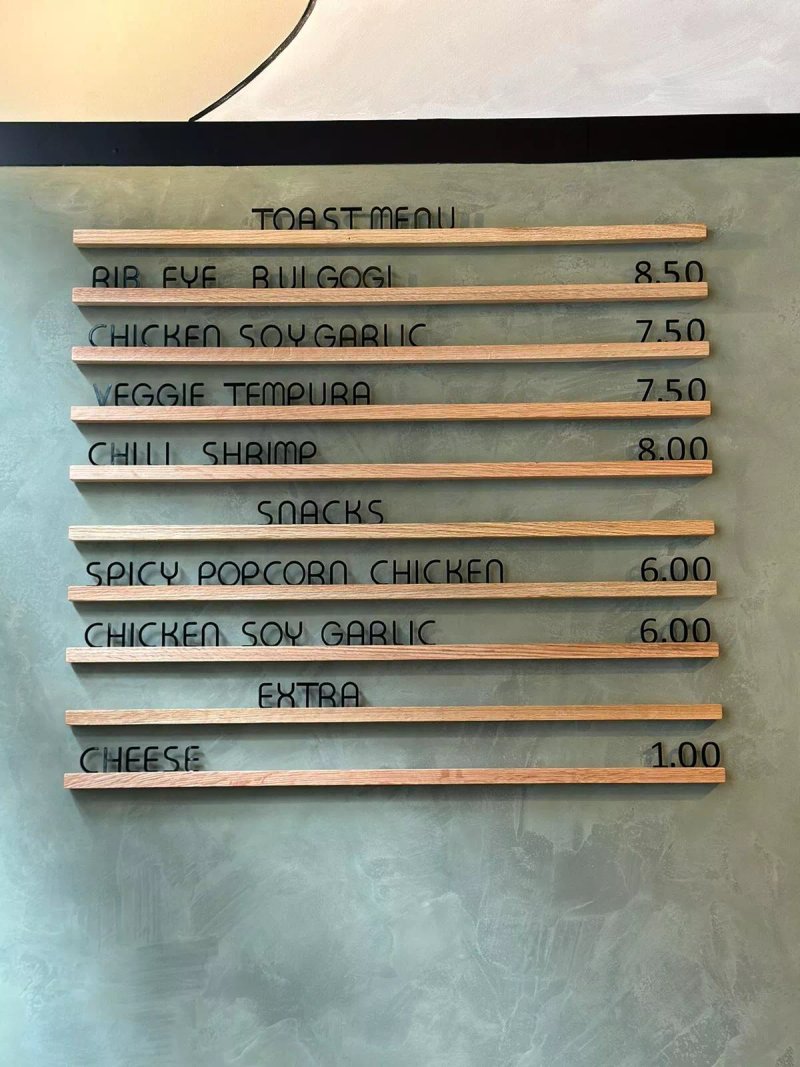 TOAST MENU
RIB EYE BULGOGI 8.50
CHICKEN SOY GARLIC 7.50
VEGGIE TEMPURA 7.50
CHILI SHRIMP 8.00
SNACKS
SPICY POPCORN CHICKEN 6.00
CHICKEN SOY GARLIC 6.00
EXTRA
CHEESE 1.00